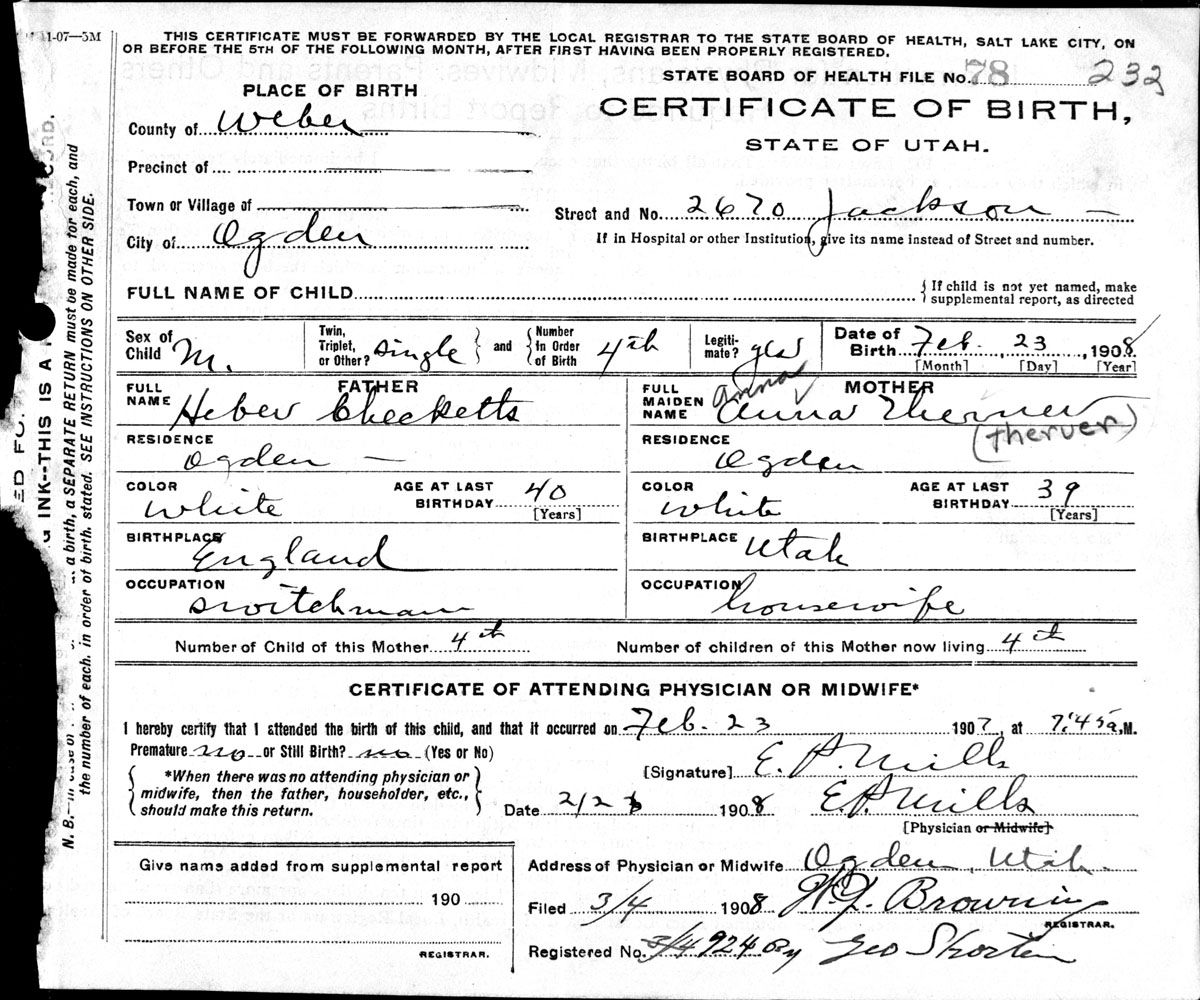 11-07—5M
THIS CERTIFICATE MUST BE FORWARDED BY THE LOCAL REGISTRAR TO THE STATE BOARD OF HEALTH, SALT LAKE CITY, ON
OR BEFORE THE 5TH OF THE FOLLOWING MONTH, AFTER FIRST HAVING BEEN PROPERLY REGISTERED.
STATE BOARD OF HEALTH FILE No. 78 232
PLACE OF BIRTH
CERTIFICATE OF BIRTH,
STATE OF UTAH.
County of Weber
Precinct of
Town or Village of
Street and No. 2670 Jackson
City of Ogden
If in Hospital or other Institution, give its name instead of Street and number.
FULL NAME OF CHILD
{If child is not yet named, make
supplemental report, as directed
Sex of Child M.
Twin, Triplet, or Other? single } and { Number in Order of Birth 4th
Legitimate? yes
Date of Birth Feb. 23, 1908
[Month] [Day] [Year]
FATHER
FULL NAME Heber Checketts
RESIDENCE Ogden
COLOR White
AGE AT LAST BIRTHDAY 40 [Years]
BIRTHPLACE England
OCCUPATION Switchman
MOTHER
Anna
FULL MAIDEN NAME Anna
(therver)
RESIDENCE Ogden
COLOR White
AGE AT LAST BIRTHDAY 39 [Years]
BIRTHPLACE Utah
OCCUPATION housewife
Number of Child of this Mother 4th
Number of children of this Mother now living 4th
CERTIFICATE OF ATTENDING PHYSICIAN OR MIDWIFE*
I hereby certify that I attended the birth of this child, and that it occurred on Feb. 23 1907, at 7:45 a.M.
Premature no or Still Birth? no (Yes or No)
{ *When there was no attending physician or
midwife, then the father, householder, etc.,
should make this return. }
[Signature] E. P. Mills
Date 1908 E P Mills
[Physician or Midwife]
Address of Physician or Midwife Ogden, Utah.
Filed 3/4 1908 Browning
REGISTRAR.
Registered No. 3/4 924 By Geo Shorten
Give name added from supplemental report
190
REGISTRAR.
G INK--THIS IS A
a birth, a SEPARATE RETURN must be made for each, and
the number of each, in order of birth, stated. SEE INSTRUCTIONS ON OTHER SIDE.
N. B.—